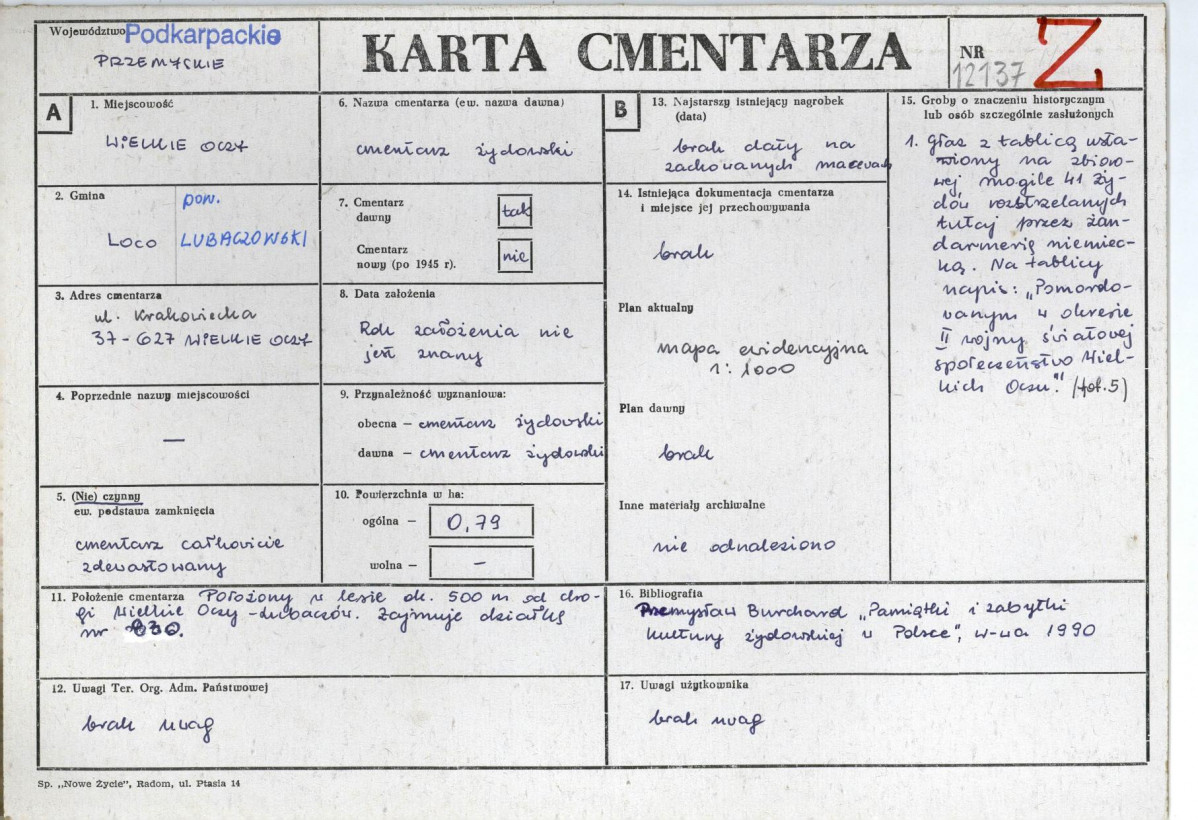 Województwo Podkarpackie
PRZEMYSKIE
KARTA CMENTARZA
NR
12137
Z
A
1. Miejscowość
WIELKIE OCZY
2. Gmina
pow.
LOCO
LUBACZOWSKI
3. Adres cmentarza
ul. Krakowiecka
37-627 WIELKIE OCZY
4. Poprzednie nazwy miejscowości
—
5. (Nie) czynny
ew. podstawa zamknięcia
cmentarz całkowicie
zdewastowany
6. Nazwa cmentarza (ew. nazwa dawna)
cmentarz żydowski
7. Cmentarz
dawny
tak
Cmentarz
nowy (po 1945 r).
nie
8. Data założenia
Rok założenia nie
jest znany
9. Przynależność wyznaniowa:
obecna — cmentarz żydowski
dawna — cmentarz żydowski
10. Powierzchnia w ha:
ogólna — 0,79
wolna — –
11. Położenie cmentarza Położony w lesie ok. 500 m od dro-
gi Wielkie Oczy - Lubaczów. Zajmuje działkę
nr
12. Uwagi Ter. Org. Adm. Państwowej
brak uwag
B
13. Najstarszy istniejący nagrobek
(data)
brak daty na
zachowanych macewach
14. Istniejąca dokumentacja cmentarza
i miejsce jej przechowywania
brak
Plan aktualny
mapa ewidencyjna
1:1000
Plan dawny
brak
Inne materiały archiwalne
nie odnaleziono
15. Groby o znaczeniu historycznym
lub osób szczególnie zasłużonych
1. Głaz z tablicą usta-
wiony na zbioro-
wej mogile 41 Ży-
dów rozstrzelanych
tutaj przez żan-
darmerię niemiec-
ką. Na tablicy
napis: „Pomordo-
wanym w okresie
II wojny światowej
społeczeństwo Wiel-
kich Oczu." (fot.5)
16. Bibliografia
Przemysław Burchard „Pamiątki i zabytki
kultury żydowskiej w Polsce", W-wa 1990
17. Uwagi użytkownika
brak uwag
Sp. „Nowe Życie", Radom, ul. Ptasia 14